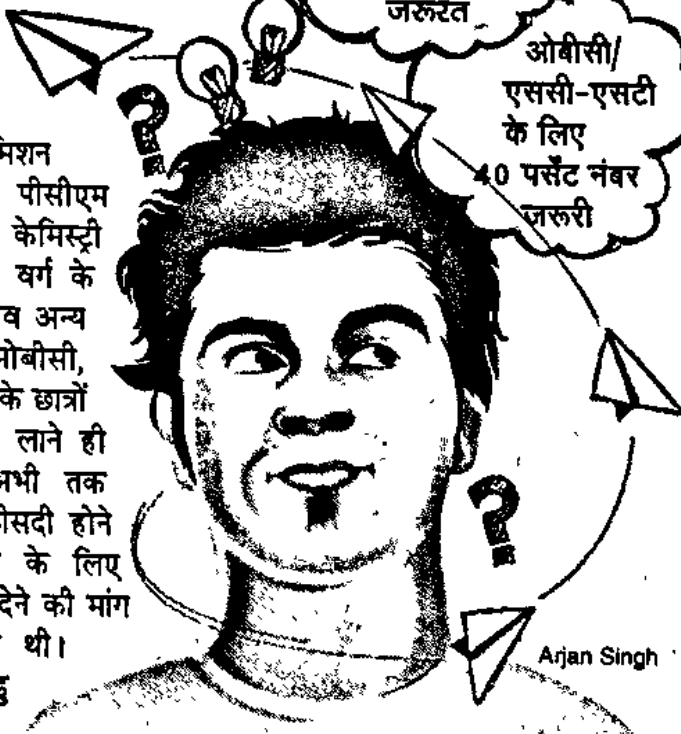 जरूरत
ओबीसी/
एससी-एसटी
के लिए
40 पर्सेंट नंबर
जरूरी
पीसीएम
केमिस्ट्री
वर्ग के
व अन्य
के छात्रों
लाने ही
तक
होने
के लिए
देने की मांग
थी।
Arjan Singh